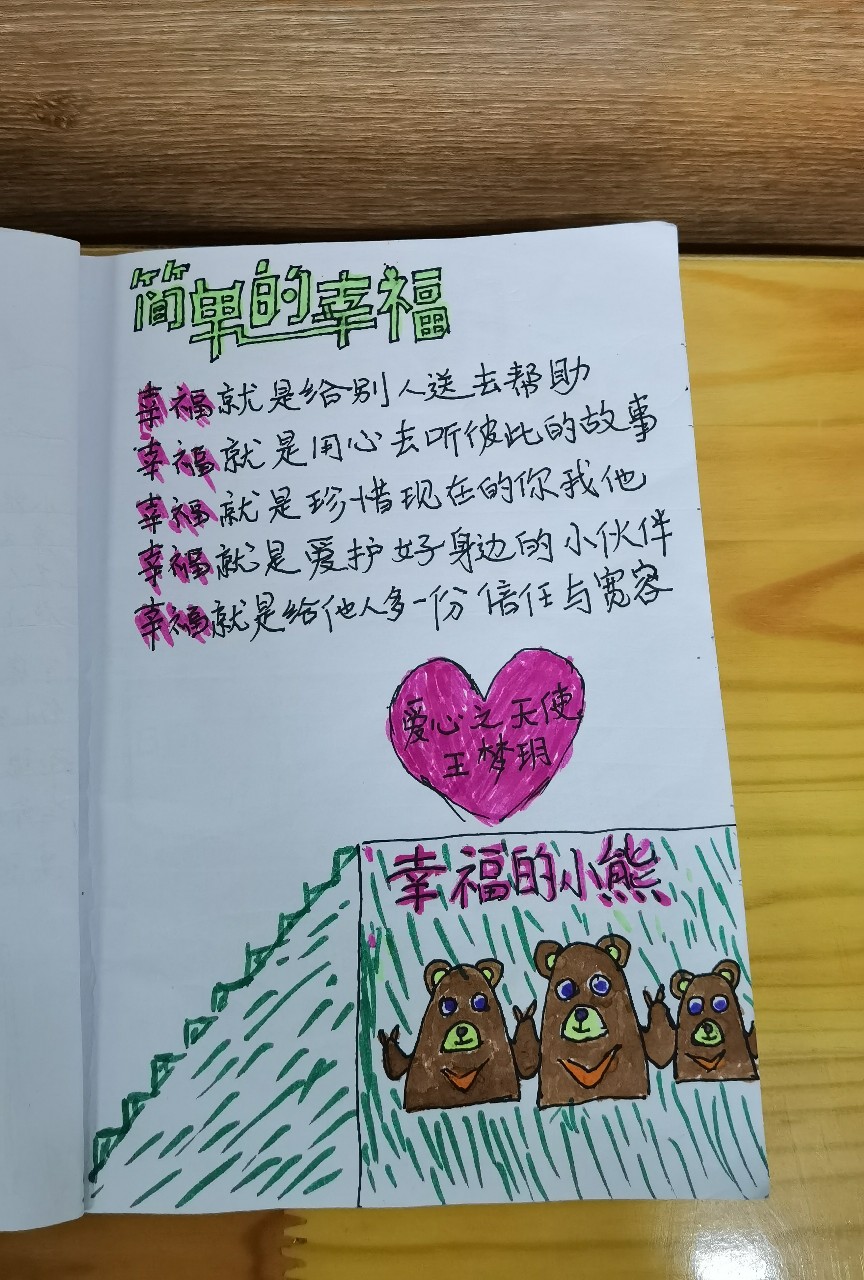 简单的幸福
幸福就是给别人送去帮助
幸福就是用心去听彼此的故事
幸福就是珍惜现在的你我他
幸福就是爱护好身边的小伙伴
幸福就是给他人多一份信任与宽容
爱心之天使
王梦玥
幸福的小熊